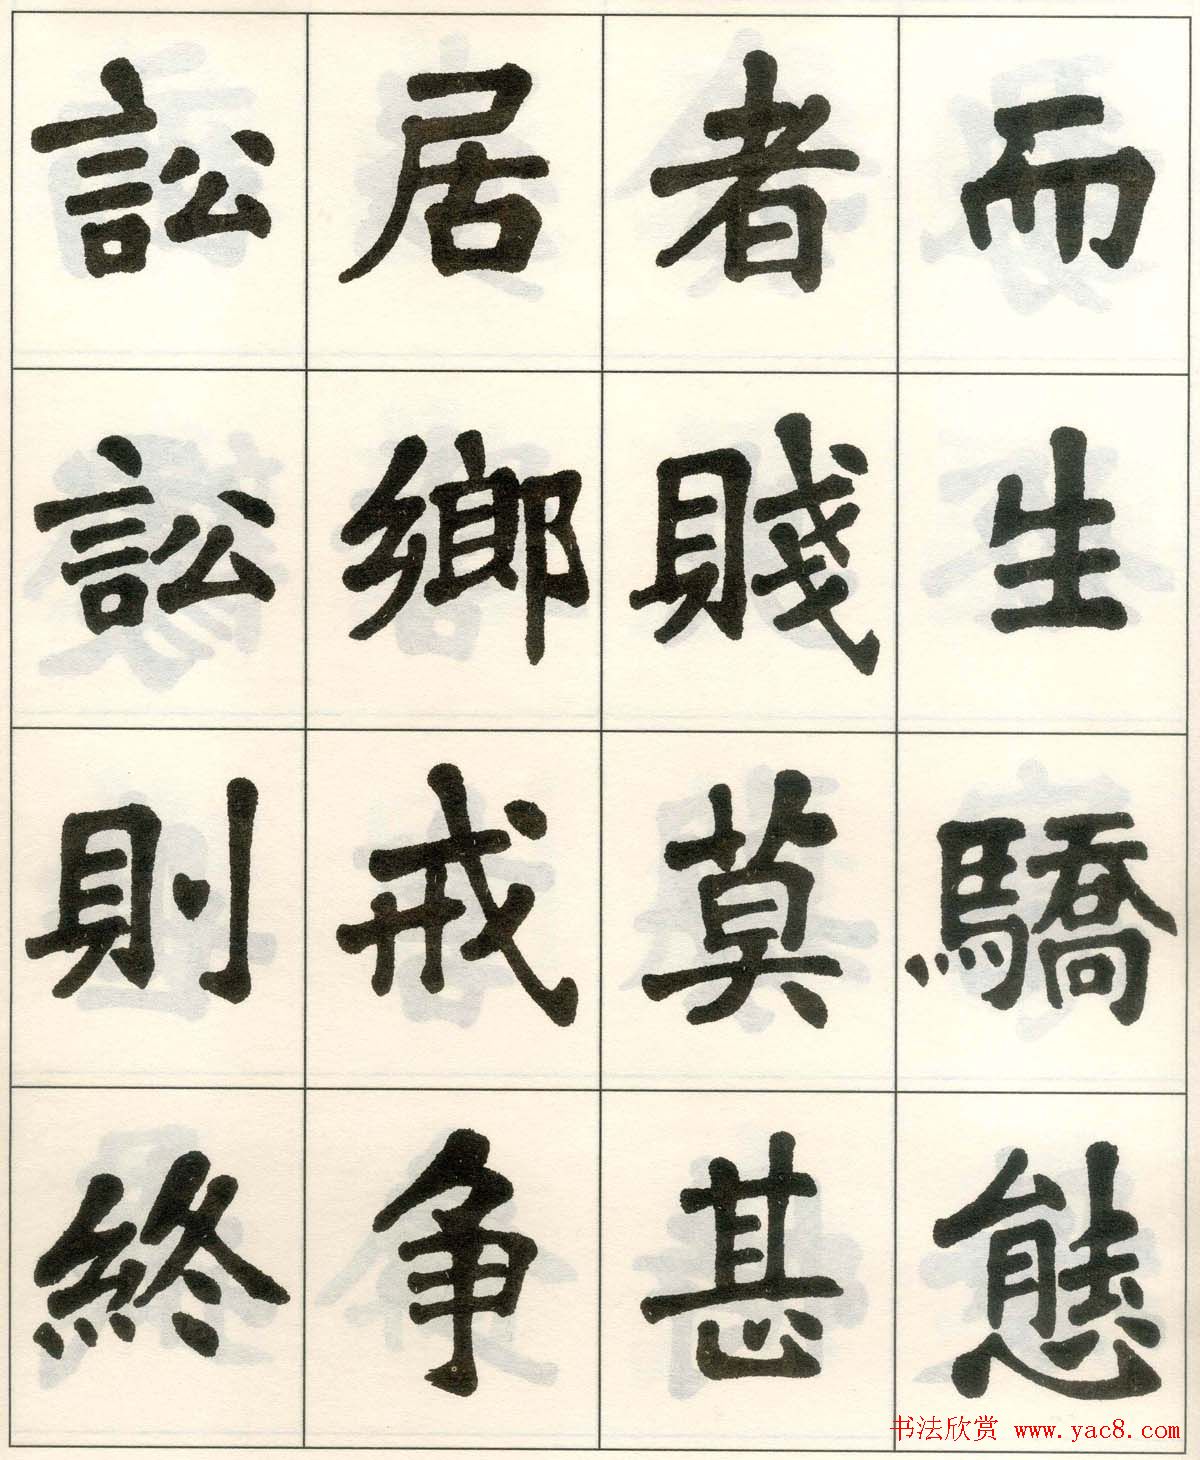 而生驕態
者賤莫甚
居鄉戒争
訟訟則終
书法欣赏 www.yac8.com